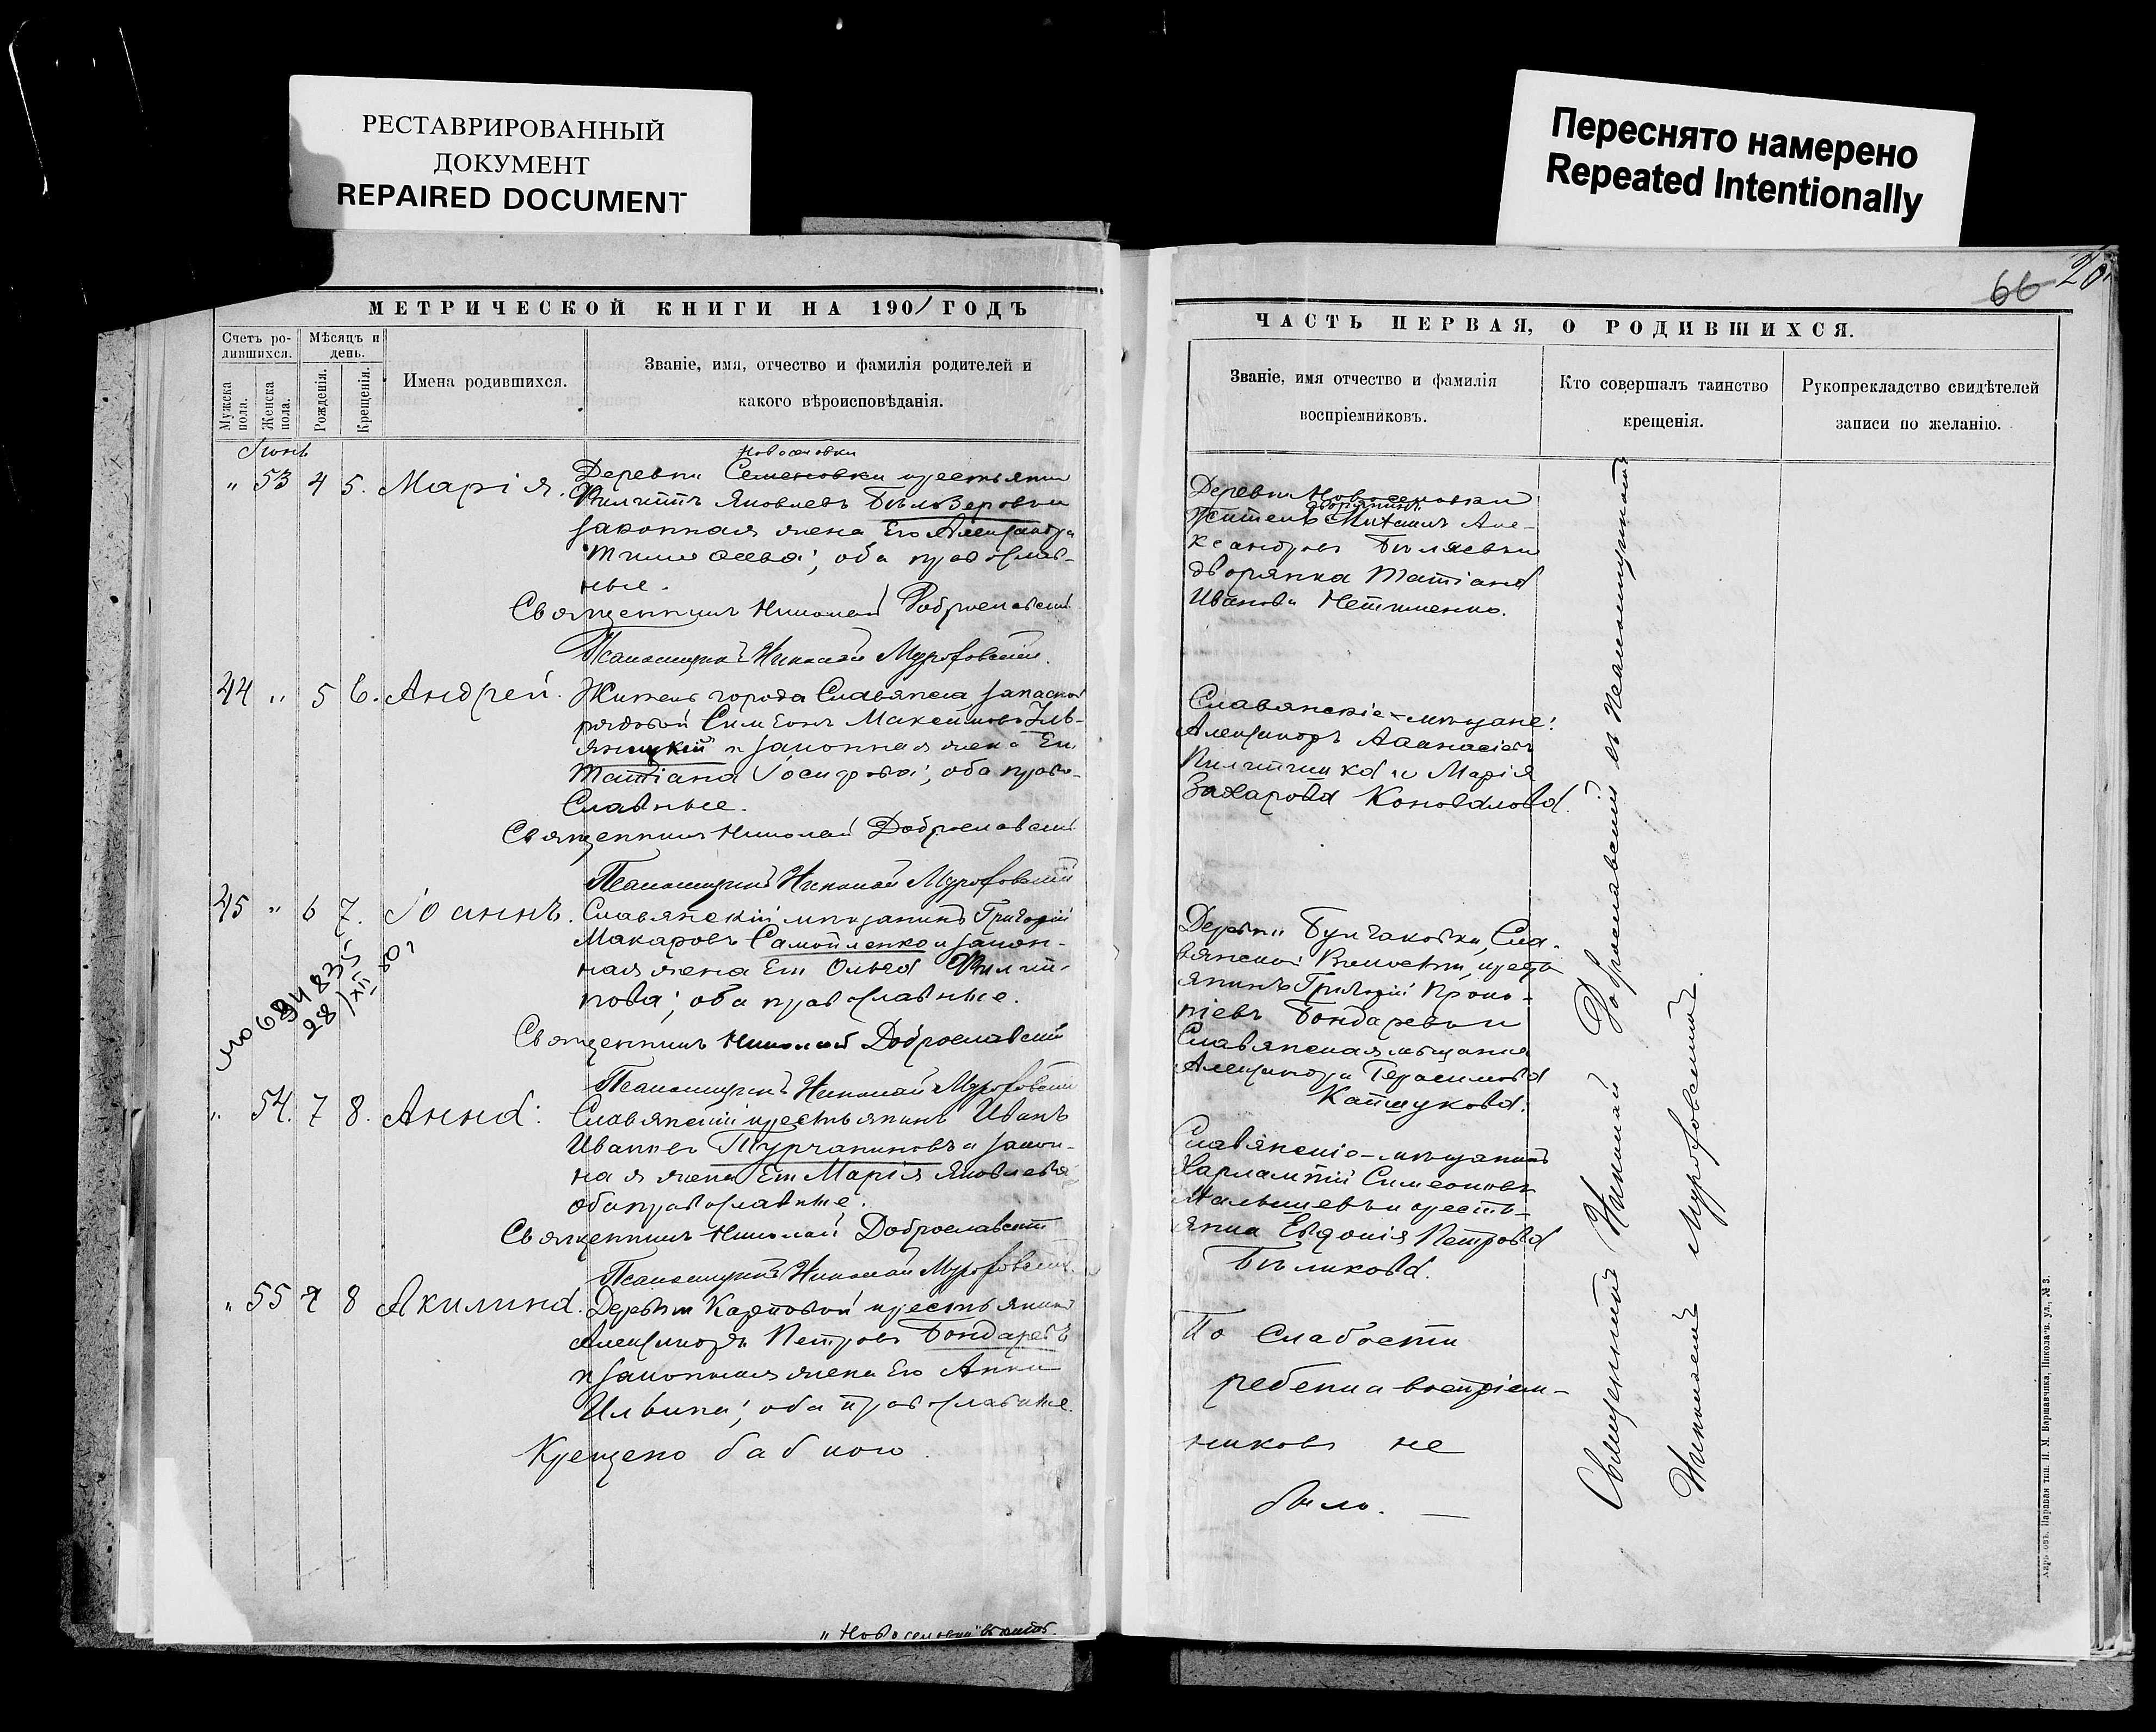 РЕСТАВРИРОВАННЫЙ
ДОКУМЕНТ
REPAIRED DOCUMENT
Переснято намерено
Repeated Intentionally
66 20
МЕТРИЧЕСКОЙ КНИГИ НА 1901 ГОДЪ
Счетъ ро-
дившихся.
Мѣсяцъ и
день.
Мужска
пола.
Женска
пола.
Рожденія.
Крещенія.
Имена родившихся.
Званіе, имя, отчество и фамилія родителей и
какого вѣроисповѣданія.
Іюнь
Новоселовки
" 53 4 5. Марія. Деревни Семеновки крестьянинъ
Филиппъ Яковлевъ Бѣлозеровъ и
законная жена Его Александра
Тимоѳеева; оба православ-
ные.
Священникъ Николай Доброславскій
Псаломщикъ Николай
44 " 5 6. Андрей. Житель города Славянска запасной
рядовой Симеонъ Максимовъ Иль-
яницкій и законная жена Его
Татіана Іосифова; оба право-
славные.
Священникъ Николай Доброславскій
Псаломщикъ Николай
45 " 6 7. Іоаннъ. Славянскій мѣщанинъ Григорій
Макаровъ Самойленко и закон-
ная жена Его Ольга Филип-
пова; оба православные.
Священникъ Николай Доброславскій
Псаломщикъ Николай
694835
28/XII 50г
" 54. 7 8. Анна: Славянскій крестьянинъ Иванъ
Ивановъ Турчаниновъ и закон-
ная жена Его Марія Яковлева
оба православные.
Священникъ Николай Доброславскій
Псаломщикъ Николай
" 55 7 8 Акилина. Деревни Карповой крестьянинъ
Александръ Петровъ Бондаревъ
и законная жена Его Анна
Ильина; оба православные.
Крещено бабкою.
"Новоселовки"
ЧАСТЬ ПЕРВАЯ, О РОДИВШИХСЯ.
Званіе, имя отчество и фамилія
воспріемниковъ.
Кто совершалъ таинство
крещенія.
Рукоприкладство свидѣтелей
записи по желанію.
Деревни Новоселовки
дворянинъ
Житель Михаилъ Але-
ксандровъ Бѣляевъ и
дворянка Татіана
Иванова Нетименко.
Славянскіе мѣщане:
Александръ Аѳанасіевъ
Пилипчинка и Марія
Захарова Коновалова.
Деревни Булгаковки, Сла-
вянской Волости, кресть
янинъ Григорій Проко-
піевъ Бондаревъ и
Славянская мѣщанка
Александра Герасимова
Катшукова.
Славянскіе мѣщанинъ
Харлампій Симеоновъ
Малышевъ и кресть-
янка Евдокія Петрова
Бѣликова.
По слабости
ребенка воспріем-
никовъ не
было. —
Священникъ Николай Доброславскій съ Псаломщикомъ
Николаемъ